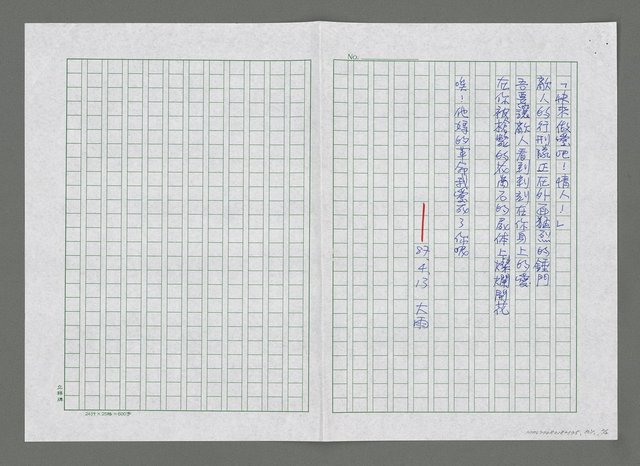 No.
「快來做愛吧！情人！」
敵人的行刑隊正在外面猛烈的鎚門
吾要讓敵人看到刺刻在你身上的愛
在你被槍斃的花崗石的屍体上燦爛開花
唉！他媽的革命我愛死了你呢
87、4、13 大雨
24行×25格＝600字